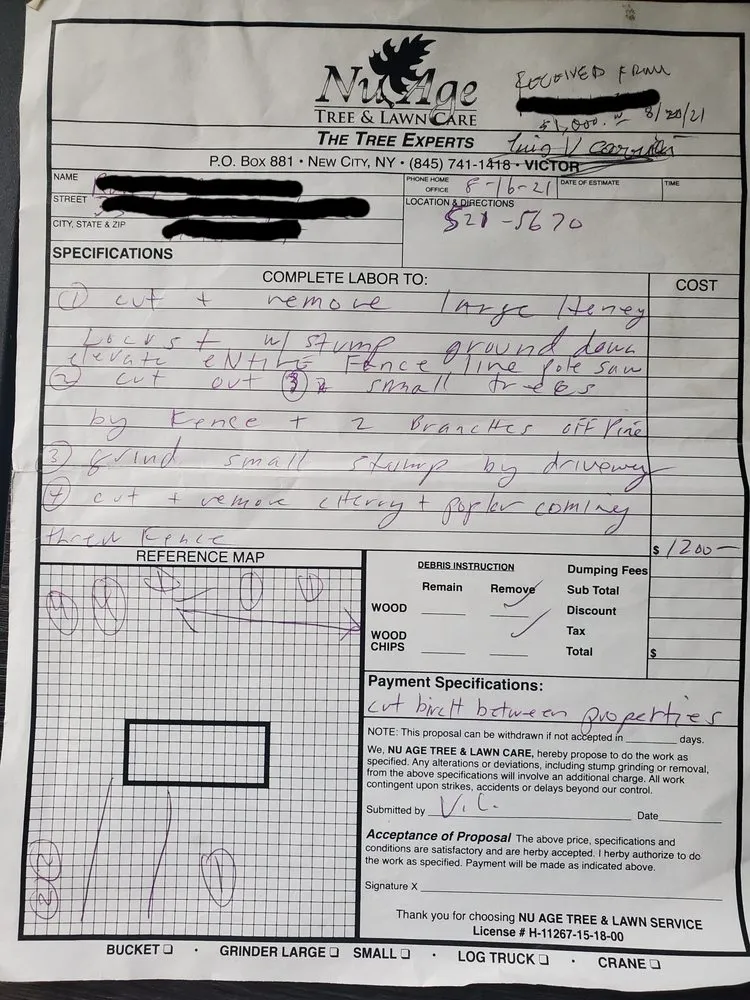 Nu Age
TREE & LAWN CARE
THE TREE EXPERTS
P.O. BOX 881 • NEW CITY, NY • (845) 741-1418 • VICTOR
RECEIVED FROM
$1,000. 8/20/21
V
NAME
STREET
CITY, STATE & ZIP
PHONE HOME
OFFICE
8-16-21
DATE OF ESTIMATE
TIME
LOCATION & DIRECTIONS
521-5670
SPECIFICATIONS
COMPLETE LABOR TO:
COST
① cut + remove large Honey
Locust w/ stump ground down
elevate entire Fence line pole saw
② cut out ③ small trees
by Fence + 2 Branches off Pine
③ grind small stump by driveway
④ cut + remove cherry + popler coming
threw Fence
$ 1200-
REFERENCE MAP
DEBRIS INSTRUCTION
Remain Remove
WOOD
WOOD CHIPS
Dumping Fees
Sub Total
Discount
Tax
Total $
Payment Specifications:
cut birch between properties
NOTE: This proposal can be withdrawn if not accepted in ________ days.
We, NU AGE TREE & LAWN CARE, hereby propose to do the work as
specified. Any alterations or deviations, including stump grinding or removal,
from the above specifications will involve an additional charge. All work
contingent upon strikes, accidents or delays beyond our control.
Submitted by V.C. Date
Acceptance of Proposal The above price, specifications and
conditions are satisfactory and are herby accepted. I herby authorize to do
the work as specified. Payment will be made as indicated above.
Signature X
Thank you for choosing NU AGE TREE & LAWN SERVICE
License # H-11267-15-18-00
BUCKET ☐ • GRINDER LARGE ☐ SMALL ☐ • LOG TRUCK ☐ • CRANE ☐